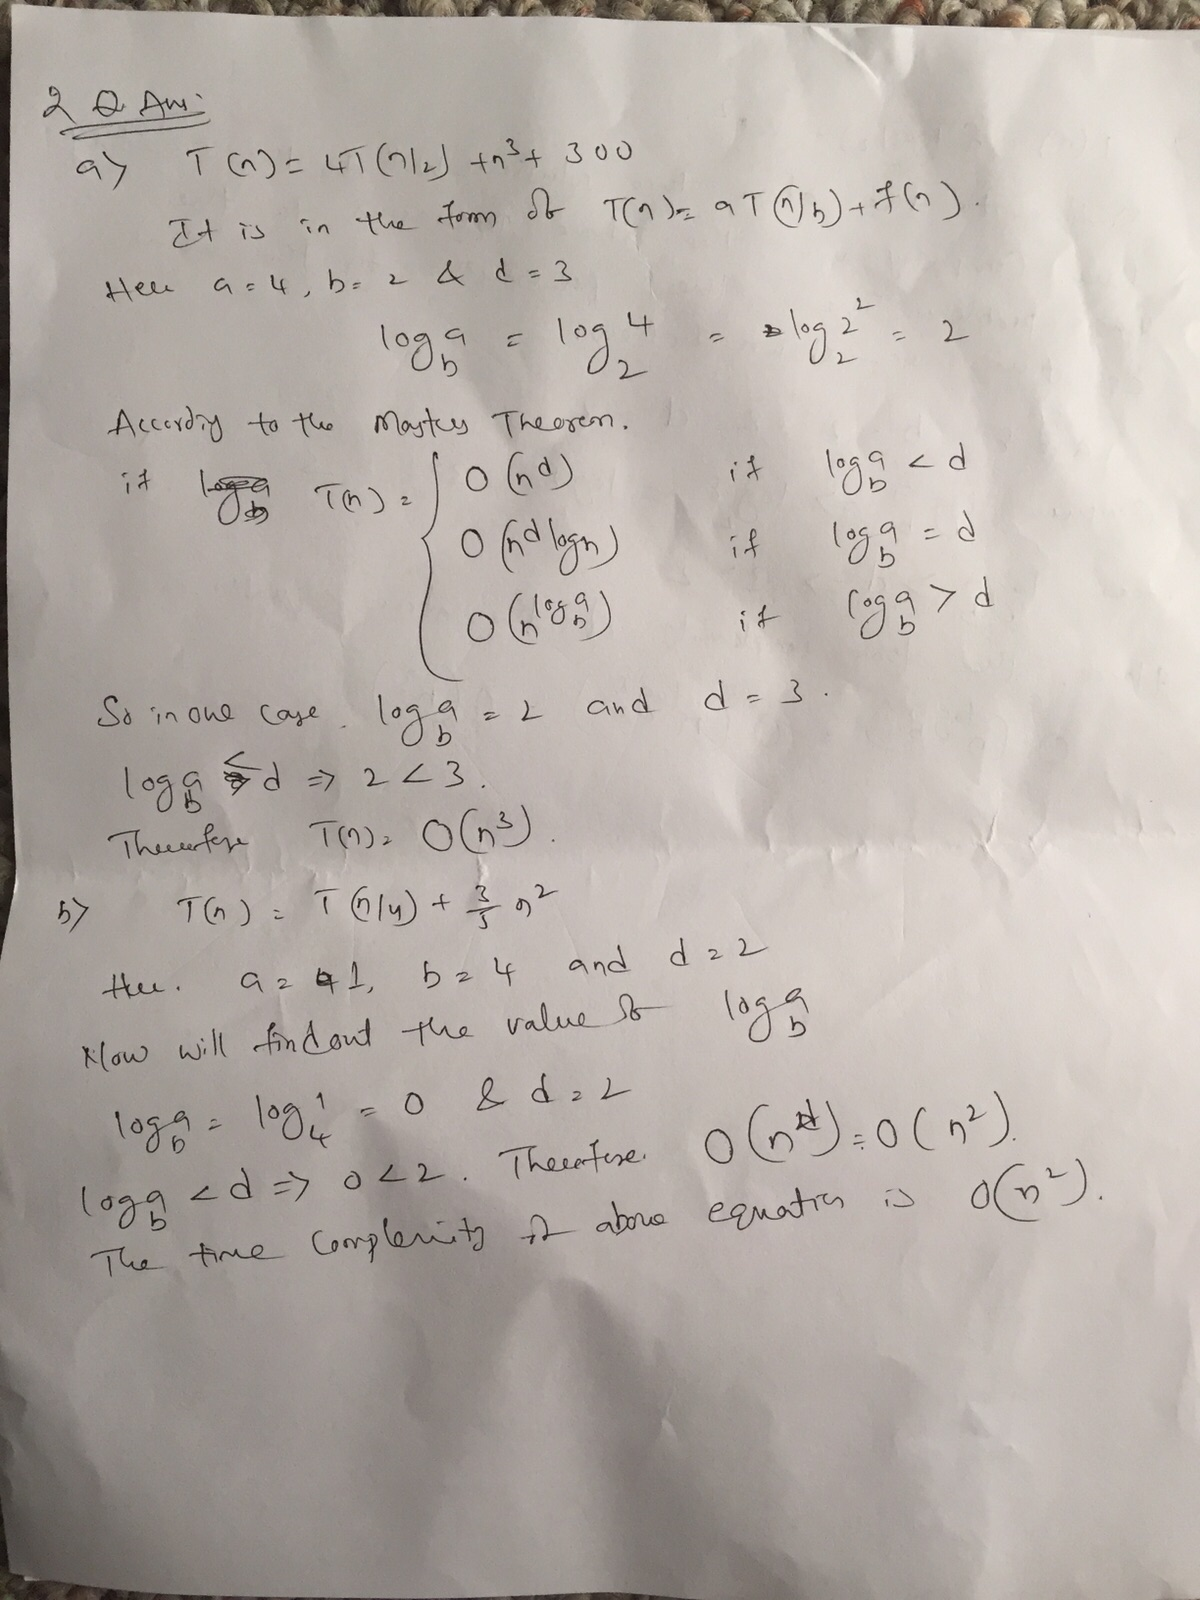 2 Q Ans:
a) T(n) = 4T(n/2) + n³ + 300
It is in the form of T(n) = aT(n/b) + f(n).
Here a = 4, b = 2 & d = 3
log_b a = log_2 4 = log_2 2² = 2
According to the Master Theorem.
if T(n) = { O(n^d) if log_b a < d
O(n^d log n) if log_b a = d
O(n^(log_b a)) if log_b a > d
So in our case. log_b a = 2 and d = 3.
log_b a < d ⇒ 2 < 3.
Therefore T(n) = O(n³).
b) T(n) = T(n/4) + 3/5 n²
Here. a = 1, b = 4 and d = 2
Now will find out the value of log_b a
log_b a = log_4 1 = 0 & d = 2
log_b a < d ⇒ 0 < 2. Therefore. O(n^d) = O(n²).
The time complexity of above equation is O(n²).